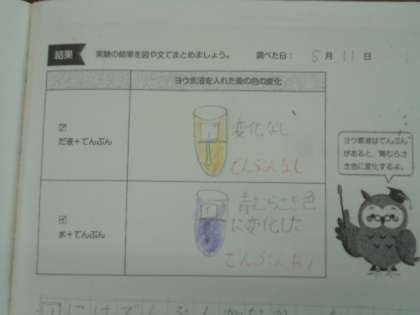 結果 実験の結果を図や文でまとめましょう。 調べた日: 5 月 11 日
ヨウ素液を入れた後の色の変化
ア
だ液+でんぷん
変化なし
でんぷんなし
イ
水+でんぷん
青むらさき色
に変化した
でんぷんあり
ヨウ素液はでんぷん
があると、青むらさ
き色に変化するよ。